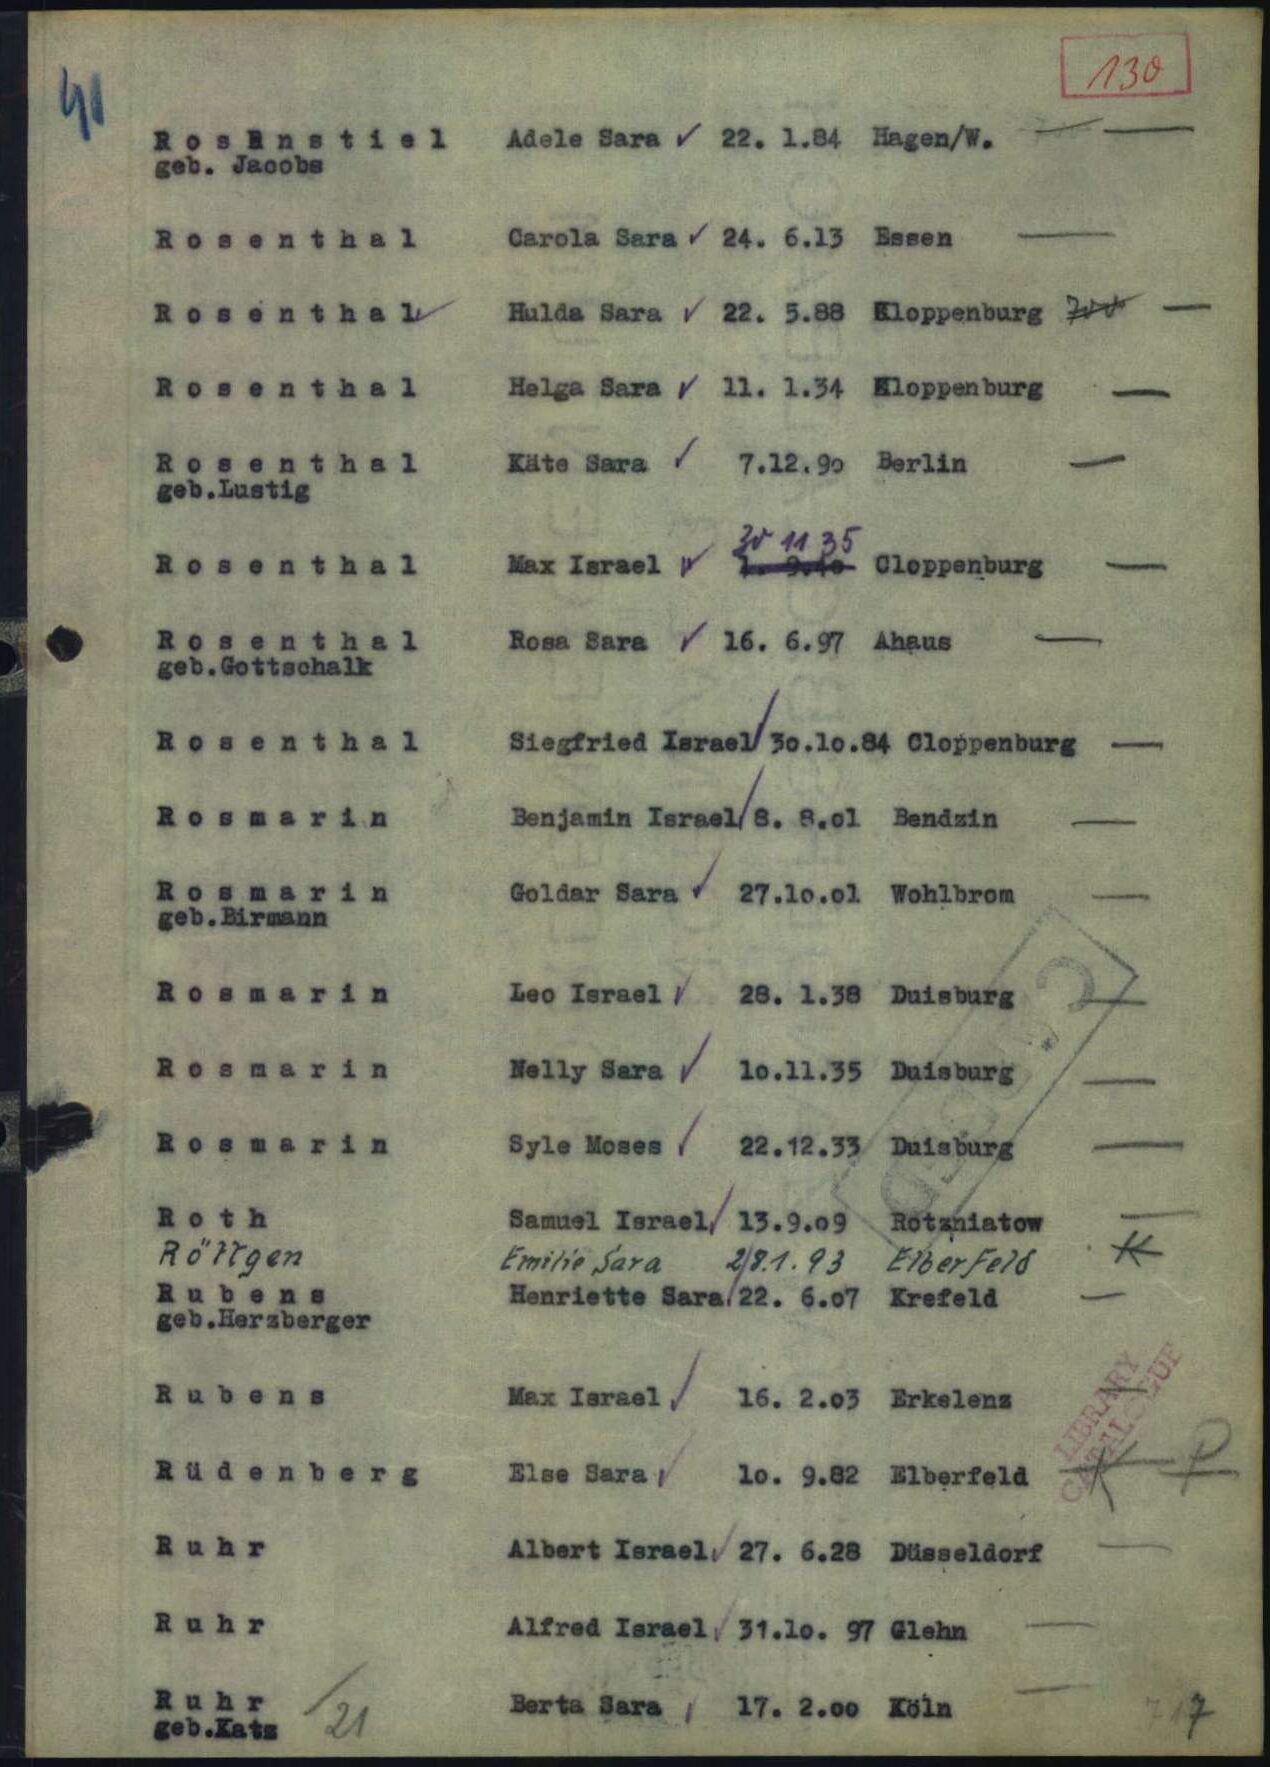 41
130
RosEnstiel Adele Sara 22. 1.84 Hagen/W.
geb. Jacobs
Rosenthal Carola Sara 24. 6.13 Essen
Rosenthal Hulda Sara 22. 5.88 Kloppenburg
Rosenthal Helga Sara 11. 1.34 Kloppenburg
Rosenthal Käte Sara 7.12.90 Berlin
geb.Lustig
30 11 35
Rosenthal Max Israel Cloppenburg
Rosenthal Rosa Sara 16. 6.97 Ahaus
geb.Gottschalk
Rosenthal Siegfried Israel 30.10.84 Cloppenburg
Rosmarin Benjamin Israel 8. 8.01 Bendzin
Rosmarin Goldar Sara 27.10.01 Wohlbrom
geb.Birmann
Rosmarin Leo Israel 28. 1.38 Duisburg
Rosmarin Nelly Sara 10.11.35 Duisburg
Rosmarin Syle Moses 22.12.33 Duisburg
Roth Samuel Israel 13.9.09 Rotzniatow
Röttgen Emilie Sara 28.1.93 Elberfeld
Rubens Henriette Sara 22. 6.07 Krefeld
geb.Herzberger
Rubens Max Israel 16. 2.03 Erkelenz
LIBRARY
Rüdenberg Else Sara 10. 9.82 Elberfeld
Ruhr Albert Israel 27. 6.28 Düsseldorf
Ruhr Alfred Israel 31.10. 97 Glehn
Ruhr Berta Sara 17. 2.00 Köln
geb.Katz
/21